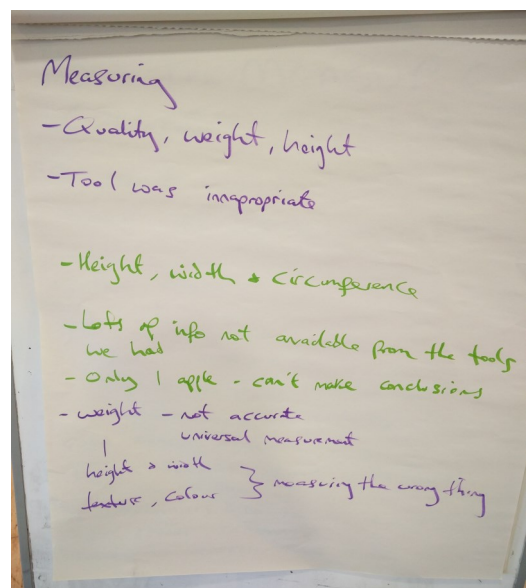 Measuring
- Quality, weight, height
- Tool was innapropriate
- Height, width + circumference
- Lots of info not available from the tools
we had
- Only 1 apple - can't make conclusions
- weight - not accurate
universal measurement
height + width
texture, colour } measuring the wrong thing